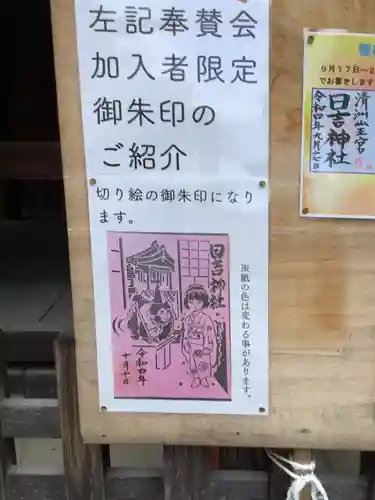 左記奉賛会
加入者限定
御朱印の
ご紹介
切り絵の御朱印になり
ます。
※紙の色は変わる事があります。
日吉神社
令和四年
十月十日
9月17日〜2
でお書きします
清洲山王宮
日吉神社
令和四年九月十七日